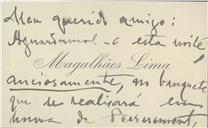 Meu querido amigo:
Aguardamol-o esta noite,
Magalhães Lima
anciosamente, no banquete
que se realisará em
honra de